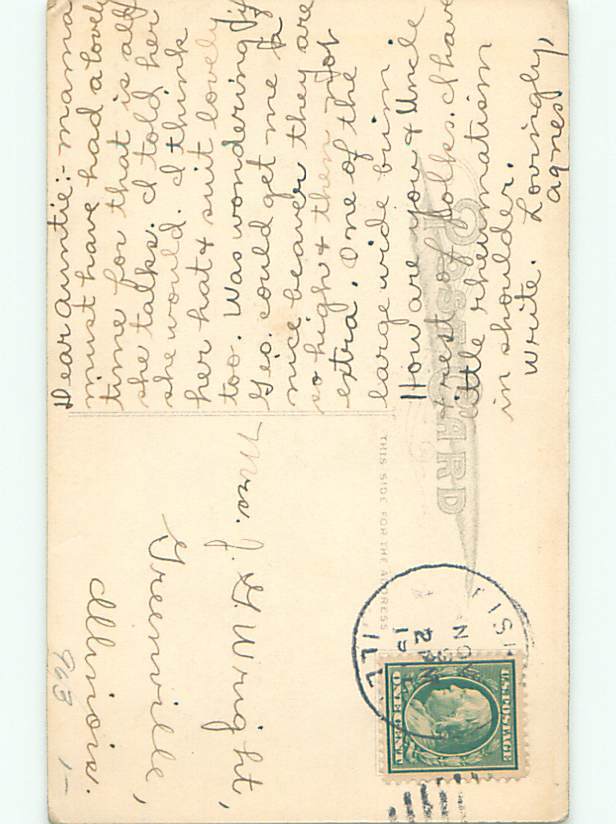 Dear Auntie:- mama
must have had a lovely
time for that is all
she talks. I told her
she would. I think
her hat & suit lovely
too. Was wondering if
Geo. could get me a
nice beaver they are
so high & then not
extra. One of the
large wide brim.
How are you & Uncle
& rest of folks. I have
little rheumatism
in shoulder.
Write. Lovingly,
Agnes
POST CARD
THIS SIDE FOR THE ADDRESS
Mrs. J. G. Wright,
Greenville,
Illinois.
963 1-
NOV
2
ILL
U.S. POSTAGE
ONE CENT